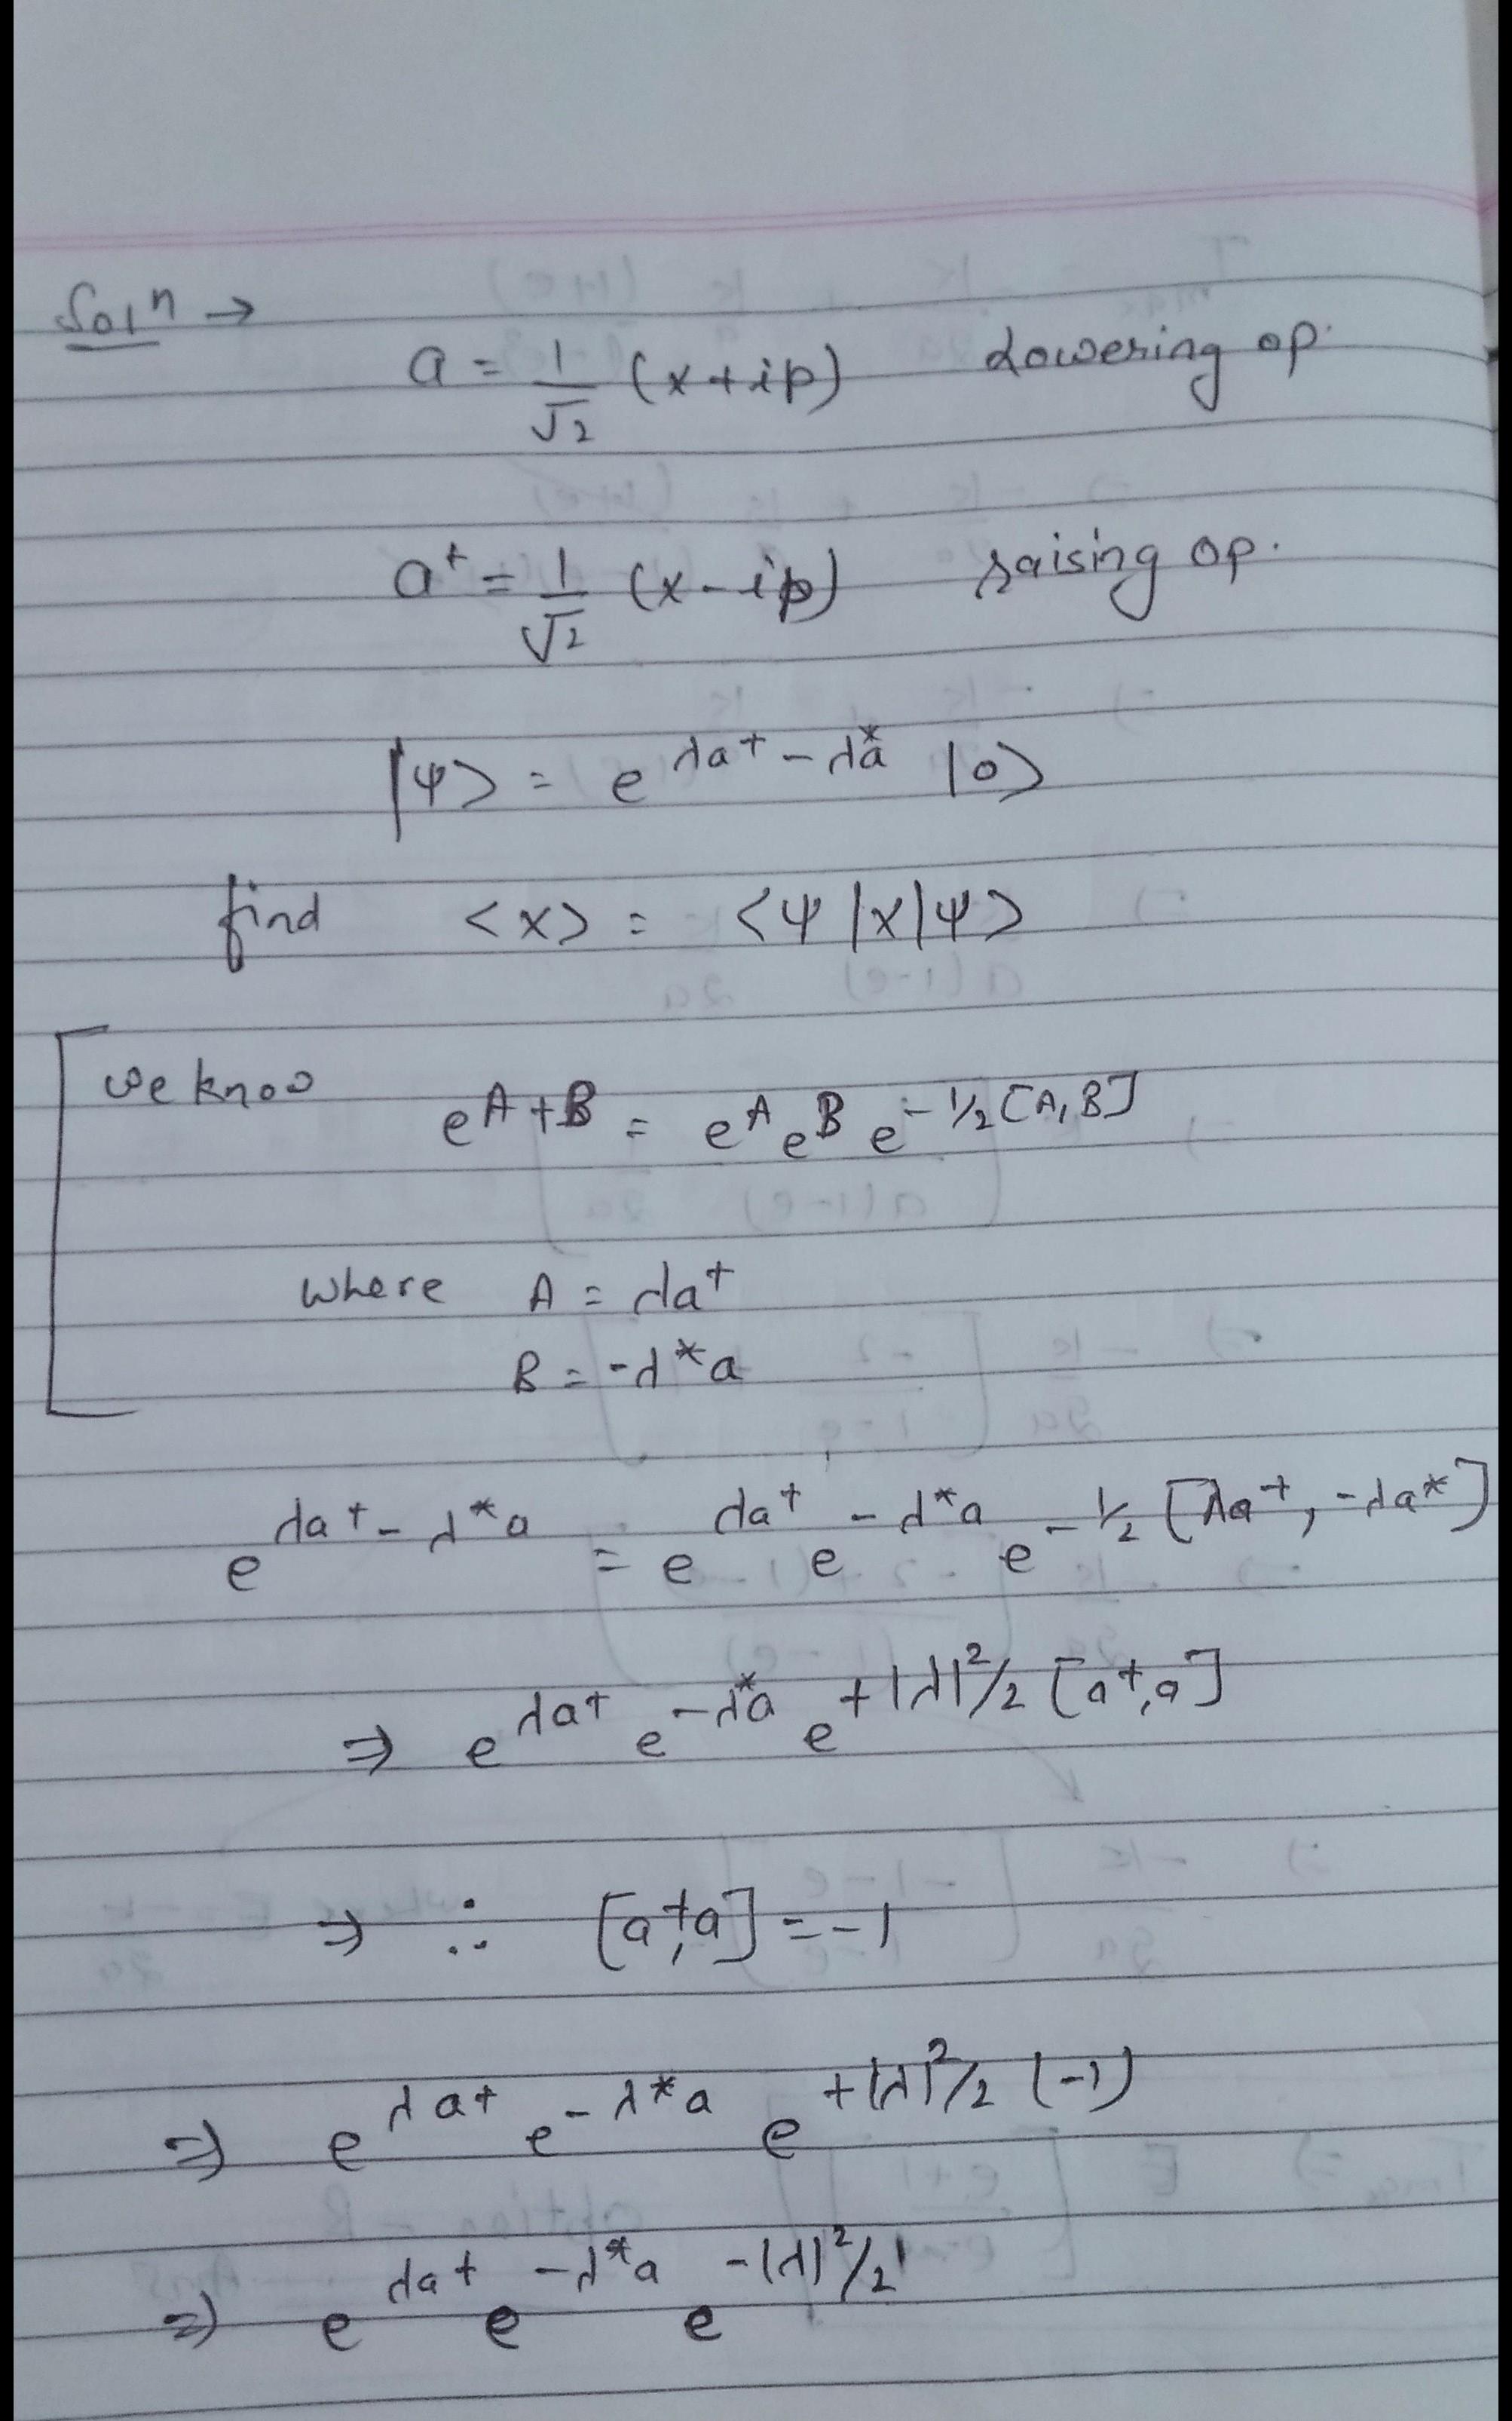 Solⁿ →
a = 1/√2 (x+ip) Lowering op.
a⁺ = 1/√2 (x-ip) raising op.
|ψ> = e^{λa⁺ - λ*a} |0>
find <x> = <ψ|x|ψ>
we know
e^{A+B} = e^A e^B e^{-1/2[A,B]}
where A = λa⁺
B = -λ*a
e^{λa⁺ - λ*a} = e^{λa⁺} e^{-λ*a} e^{-1/2[λa⁺, -λa*]}
⇒ e^{λa⁺} e^{-λ*a} e^{+|λ|²/2 [a⁺,a]}
⇒ ∴ [a⁺,a] = -1
⇒ e^{λa⁺} e^{-λ*a} e^{+|λ|²/2 (-1)}
⇒ e^{λa⁺} e^{-λ*a} e^{-|λ|²/2}